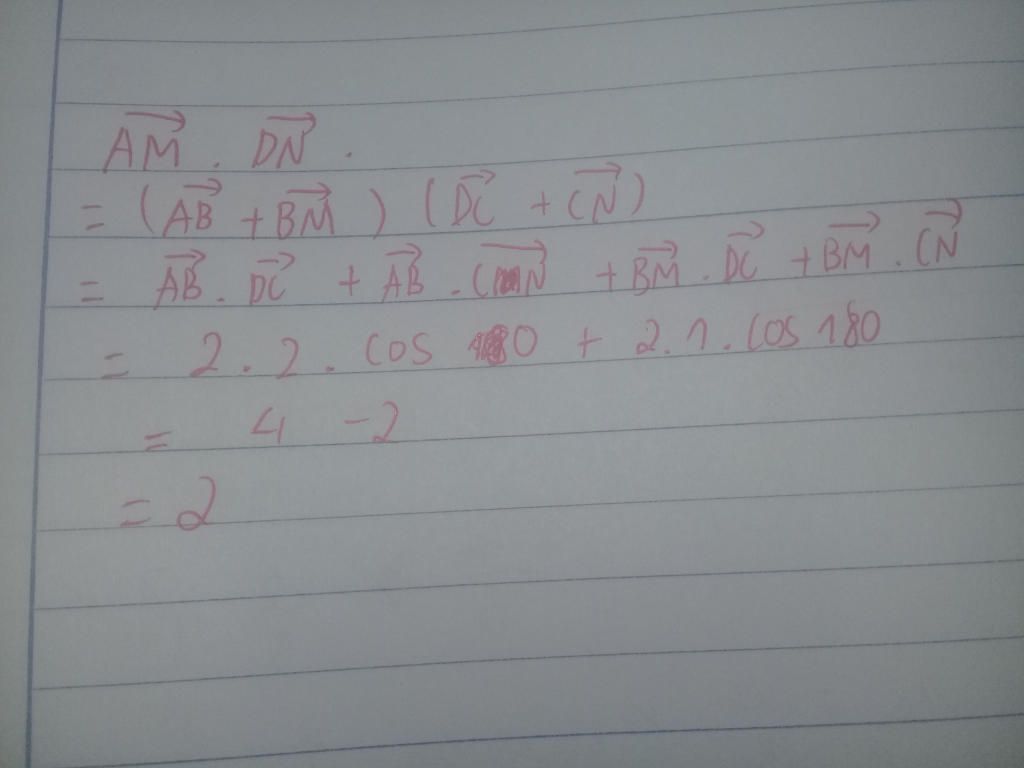 AM⃗ . DN⃗ .
= (AB⃗ + BM⃗ ) (DC⃗ + CN⃗)
= AB⃗ . DC⃗ + AB⃗ . CN⃗ + BM⃗ . DC⃗ + BM⃗ . CN⃗
= 2 . 2 . cos 0 + 2.1. cos 180
= 4 - 2
= 2